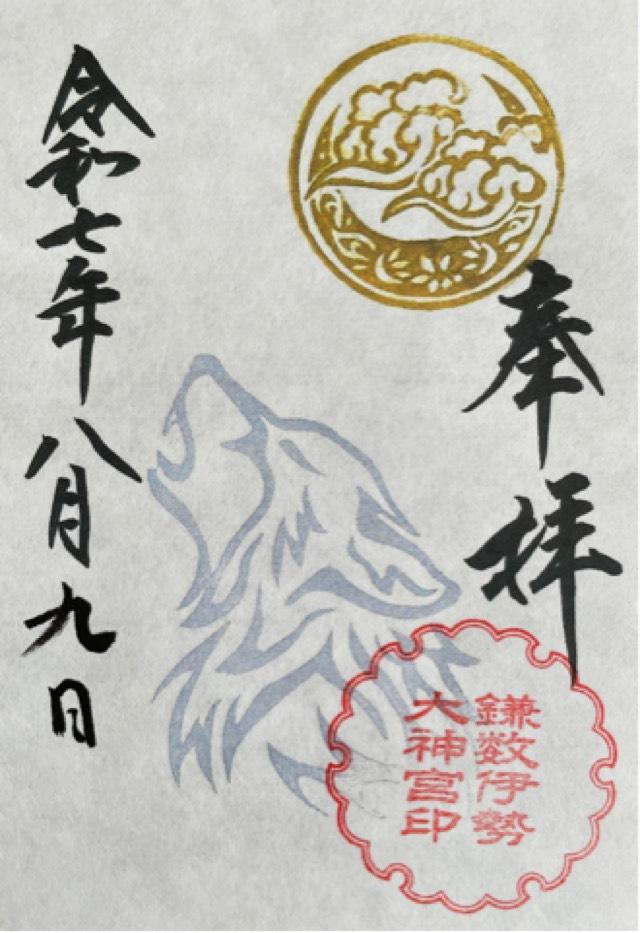 奉拝
鎌数伊勢
大神宮印
令和七年八月九日